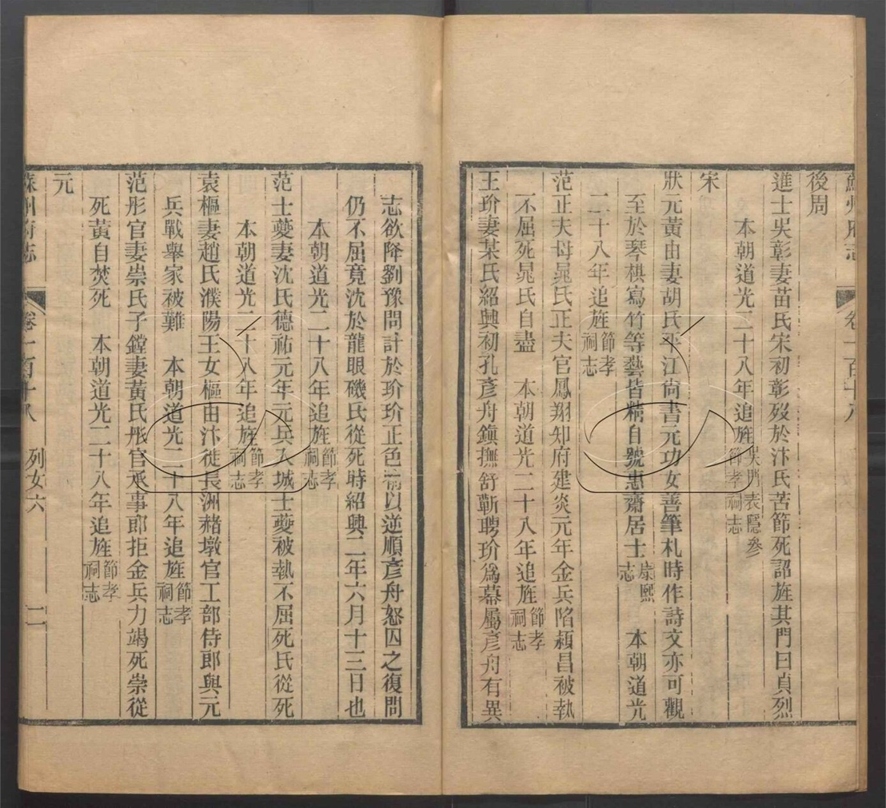 蘇州府志 卷一百十八
後周
進士吳彰妻苗氏宋初彰歿於汴氏苦節死詔旌其門曰貞烈
本朝道光二十八年追旌吳門表隱參節孝祠志
宋
狀元黃由妻胡氏平江尚書元功女善筆札時作詩文亦可觀
至於琴棋寫竹等藝皆精自號惠齋居士康熙志 本朝道光
二十八年追旌節孝祠志
范正夫母晁氏正夫官鳳翔知府建炎元年金兵陷潁昌被執
不屈死晁氏自盡 本朝道光二十八年追旌節孝祠志
王玠妻某氏紹興初孔彥舟鎮撫舒蘄聘玠為幕屬彥舟有異
志欲降劉豫問計於玠玠正色喻以逆順彥舟怒囚之復問
仍不屈竟沈於龍眼磯氏從死時紹興二年六月十三日也
本朝道光二十八年追旌節孝祠志
范士夔妻沈氏德祐元年元兵入城士夔被執不屈死氏從死
本朝道光二十八年追旌節孝祠志
袁樞妻趙氏濮陽王女樞由汴徙長洲赭墩官工部侍郎與元
兵戰舉家被難 本朝道光二十八年追旌節孝祠志
范彤官妻崇氏子鏜妻黃氏彤官丞事郎拒金兵力竭死崇從
死黃自焚死 本朝道光二十八年追旌節孝祠志
元
蘇州府志 卷一百十八 列女六 二